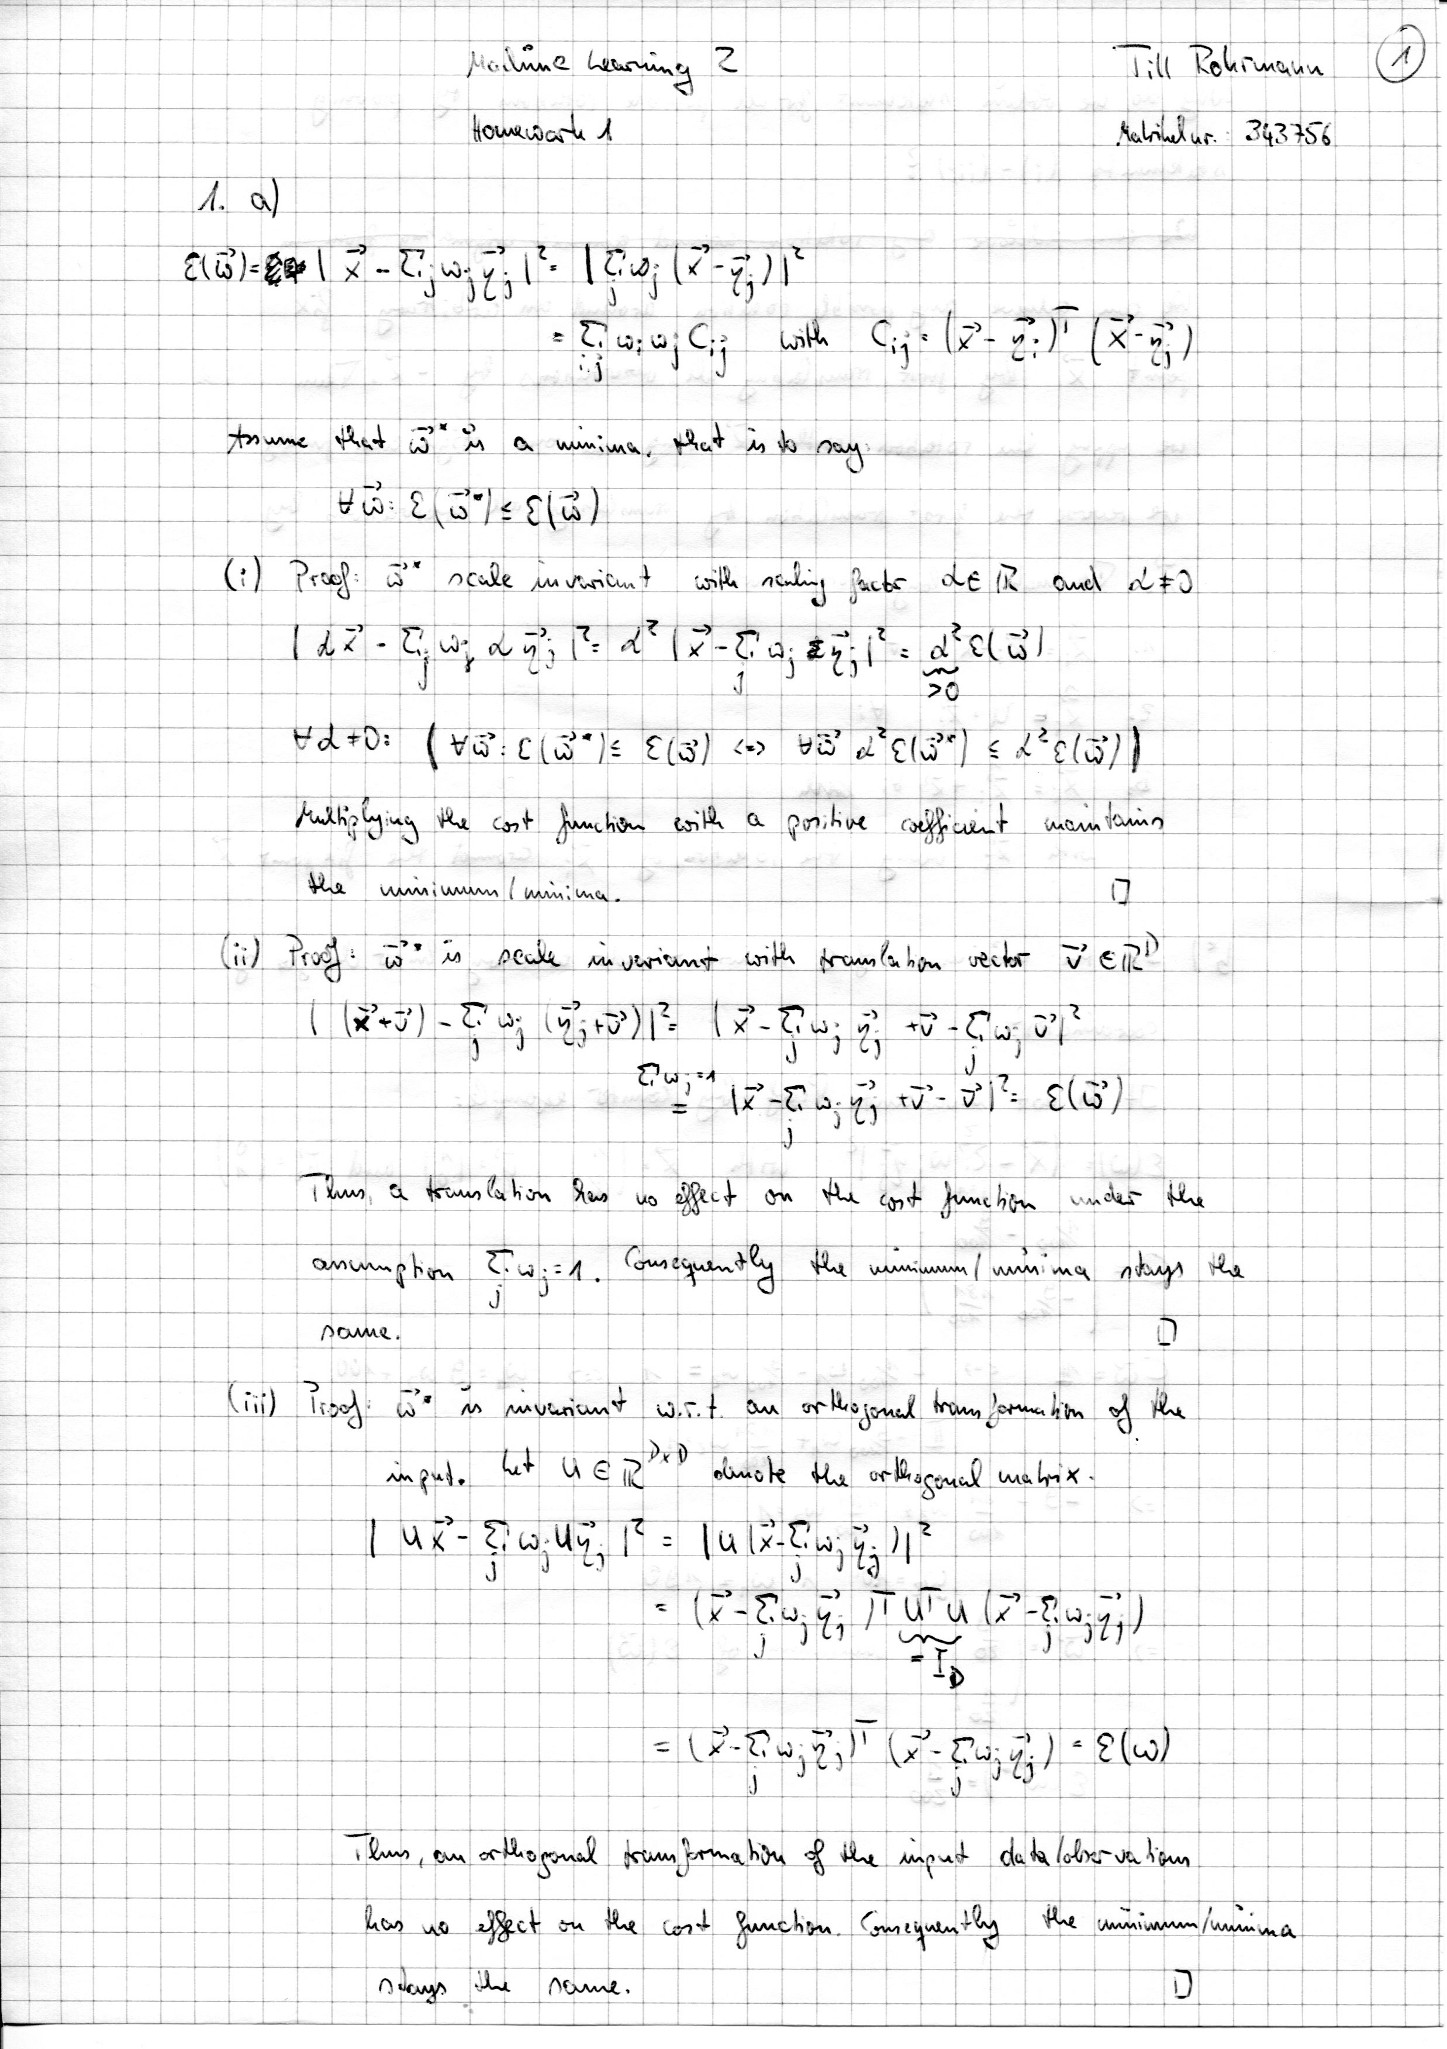 Machine Learning 2 Till Rohrmann 1
Homework 1 Matrikelnr.: 343756
1. a)
ε(w⃗) = | x⃗ - Σ_j w_j η⃗_j |² = | Σ_j w_j (x⃗ - η⃗_j) |²
= Σ_{i,j} w_i w_j C_ij with C_ij = (x⃗ - η⃗_i)^T (x⃗ - η⃗_j)
Assume that w⃗* is a minima. that is to say:
∀w⃗: ε(w⃗*) ≤ ε(w⃗)
(i) Proof: w⃗* scale invariant with scaling factor α ∈ ℝ and α ≠ 0
| αx⃗ - Σ_j w_j α η⃗_j |² = α² | x⃗ - Σ_j w_j η⃗_j |² = α² ε(w⃗)
>0
∀α ≠ 0: ( ∀w⃗: ε(w⃗*) ≤ ε(w⃗) <=> ∀w⃗ α² ε(w⃗*) ≤ α² ε(w⃗) )
Multiplying the cost function with a positive coefficient maintains
the minimum/minima. □
(ii) Proof: w⃗* is scale invariant with translation vector v⃗ ∈ ℝ^D
| (x⃗+v⃗) - Σ_j w_j (η⃗_j+v⃗) |² = | x⃗ - Σ_j w_j η⃗_j + v⃗ - Σ_j w_j v⃗ |²
Σ w_j = 1
= | x⃗ - Σ_j w_j η⃗_j + v⃗ - v⃗ |² = ε(w⃗)
Thus, a translation has no effect on the cost function under the
assumption Σ_j w_j = 1. Consequently the minimum/minima stays the
same. □
(iii) Proof: w⃗* is invariant w.r.t. an orthogonal transformation of the
input. Let U ∈ ℝ^{D×D} denote the orthogonal matrix.
| U x⃗ - Σ_j w_j U η⃗_j |² = | U (x⃗ - Σ_j w_j η⃗_j) |²
= (x⃗ - Σ_j w_j η⃗_j)^T U^T U (x⃗ - Σ_j w_j η⃗_j)
= I_D
= (x⃗ - Σ_j w_j η⃗_j)^T (x⃗ - Σ_j w_j η⃗_j) = ε(w)
Thus, an orthogonal transformation of the input data/observations
has no effect on the cost function. Consequently the minimum/minima
stays the same. □